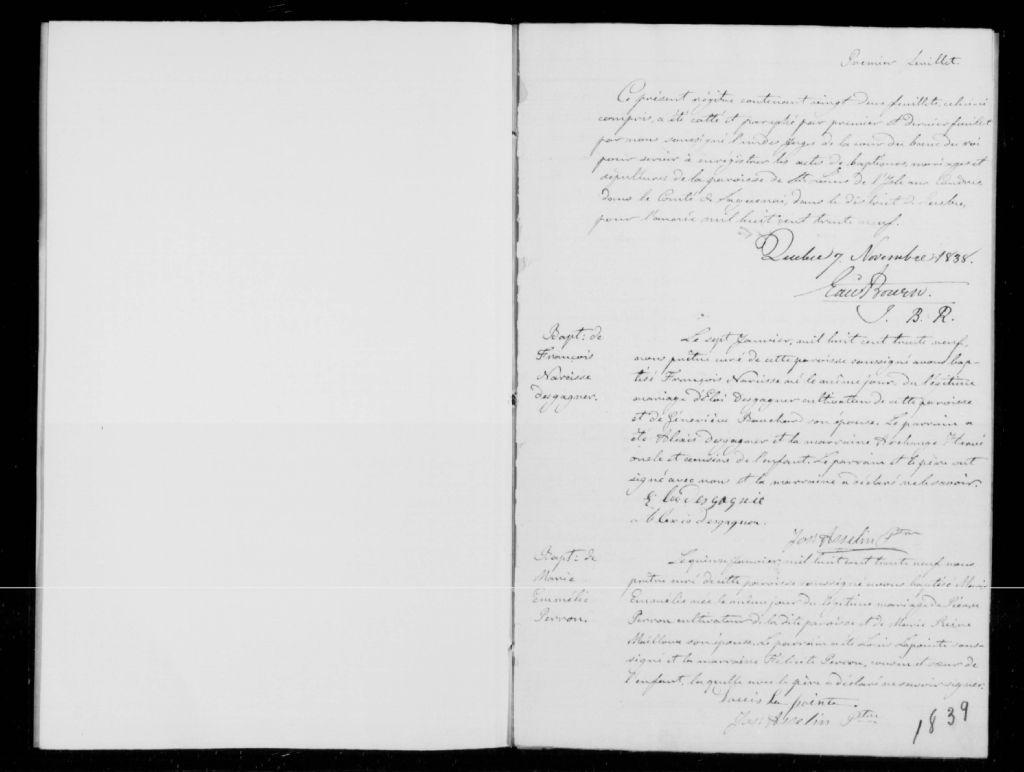 Premier feuillet.
Ce présent régitre contenant vingt deux feuillets, celui-ci
compris, a été cotté et paraphé par premier et dernier feuillet
par nous soussigné l'un des Juges de la cour du banc du roi
pour servir à enrégistrer les actes de baptêmes, mariages et
sépultures de la paroisse de St. Louis de l'Isle aux Coudres
dans le Comté de Saguenai, dans le district de Quebec,
pour l'année mil huit cent trente neuf.
Quebec 7 Novembre 1838.
Ed. Bowen.
J. B. R.
Bapt: de
François
Narcisse
desgagner.
Le sept Janvier, mil huit cent trente neuf
nous prêtre curé de cette paroisse soussigné avons bap-
tisé François Narcisse né le même jour du légitime
mariage d'Eloi Desgagner cultivateur de cette paroisse
et de Géneviève Boucher son épouse. Le parrain a
été Alexis desgagner et la marraine
oncle et cousine de l'enfant. Le parrain et le père ont
signé avec nous et la marraine a déclaré ne le savoir.
desgagnie
alexis desgagner.
Jos Asselin Ptre
Bapt: de
Marie
Emmélie
Perron.
Le Janvier, mil huit cent trente neuf nous
prêtre curé de cette paroisse soussigné avons baptisé Marie
Emmélie née le même jour du légitime mariage de Pierre
Perron cultivateur de la dite paroisse et de Marie Reine
Mailloux son épouse. Le parrain a été Louis Lapointe sous-
signé et la marraine Félicité Perron, cousin et sœur de
l'enfant, laquelle avec le père a déclaré ne savoir signer.
Louis La pointe.
Jos Asselin Ptre
1839